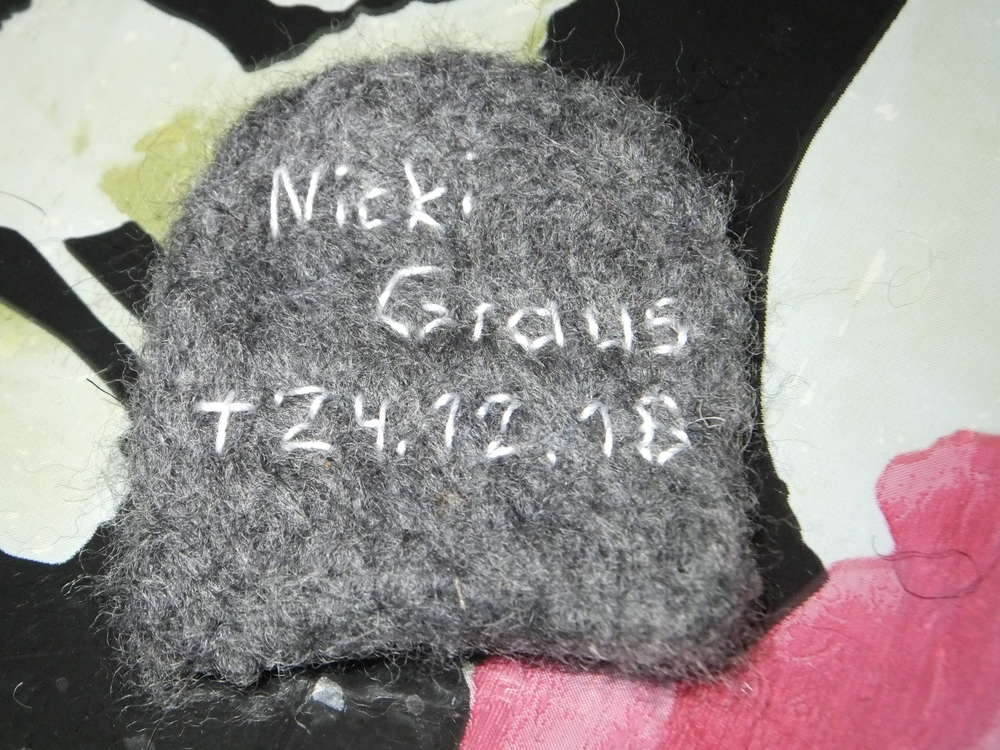 Nicki
Graus
†24.12.18